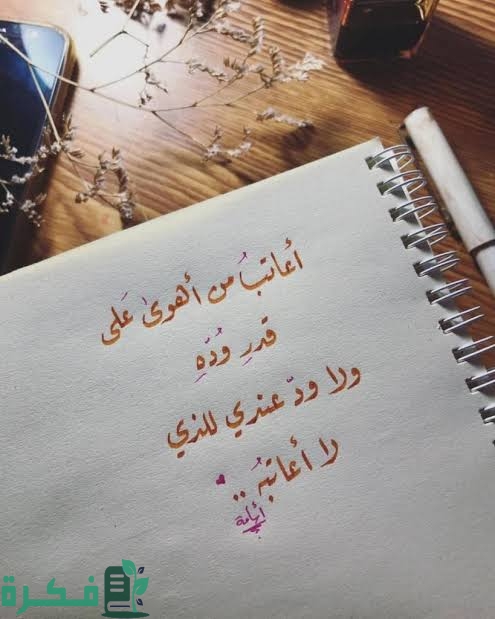 أعاتبُ من أهوىٰ عَلى
قدرِ وُدّهِ
ولا ودّ عندي للذي
لا أعاتبُه ..
فكرة